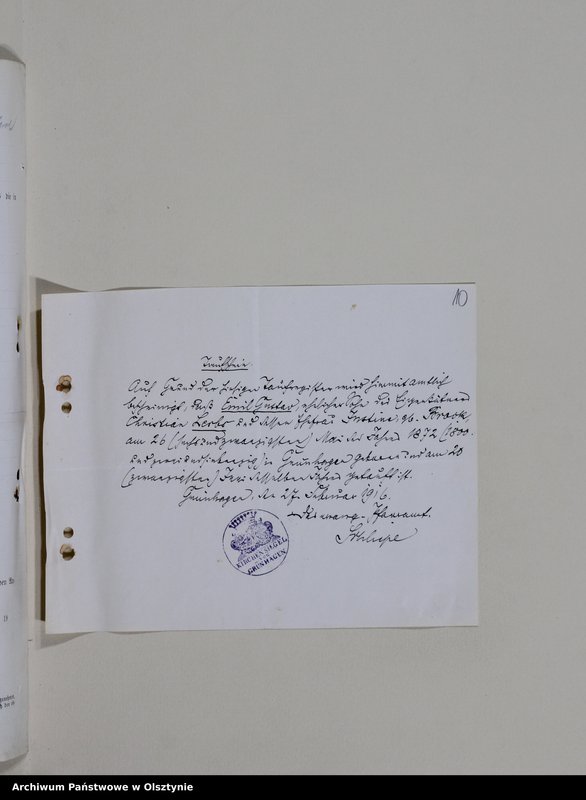 10
Taufschein
Auf Grund der hiesigen Taufregister wird hiermit amtlich
bescheinigt, daß Emil Gustav, ehelicher Sohn des Eigenkätners
Christian und dessen Ehefrau Justine, geb.
am 26 (sechsundzwanzigsten) Mai des Jahres 1872 (1800-
undzweiundsiebenzig) in Grünhagen geboren und am 20
(zwanzigsten) Juni desselben Jahres getauft ist.
Grünhagen, den 27. Februar 1916.
Pfarramt.
KIRCHENSIEGEL
GRÜNHAGEN
die in
19
Archiwum Państwowe w Olsztynie